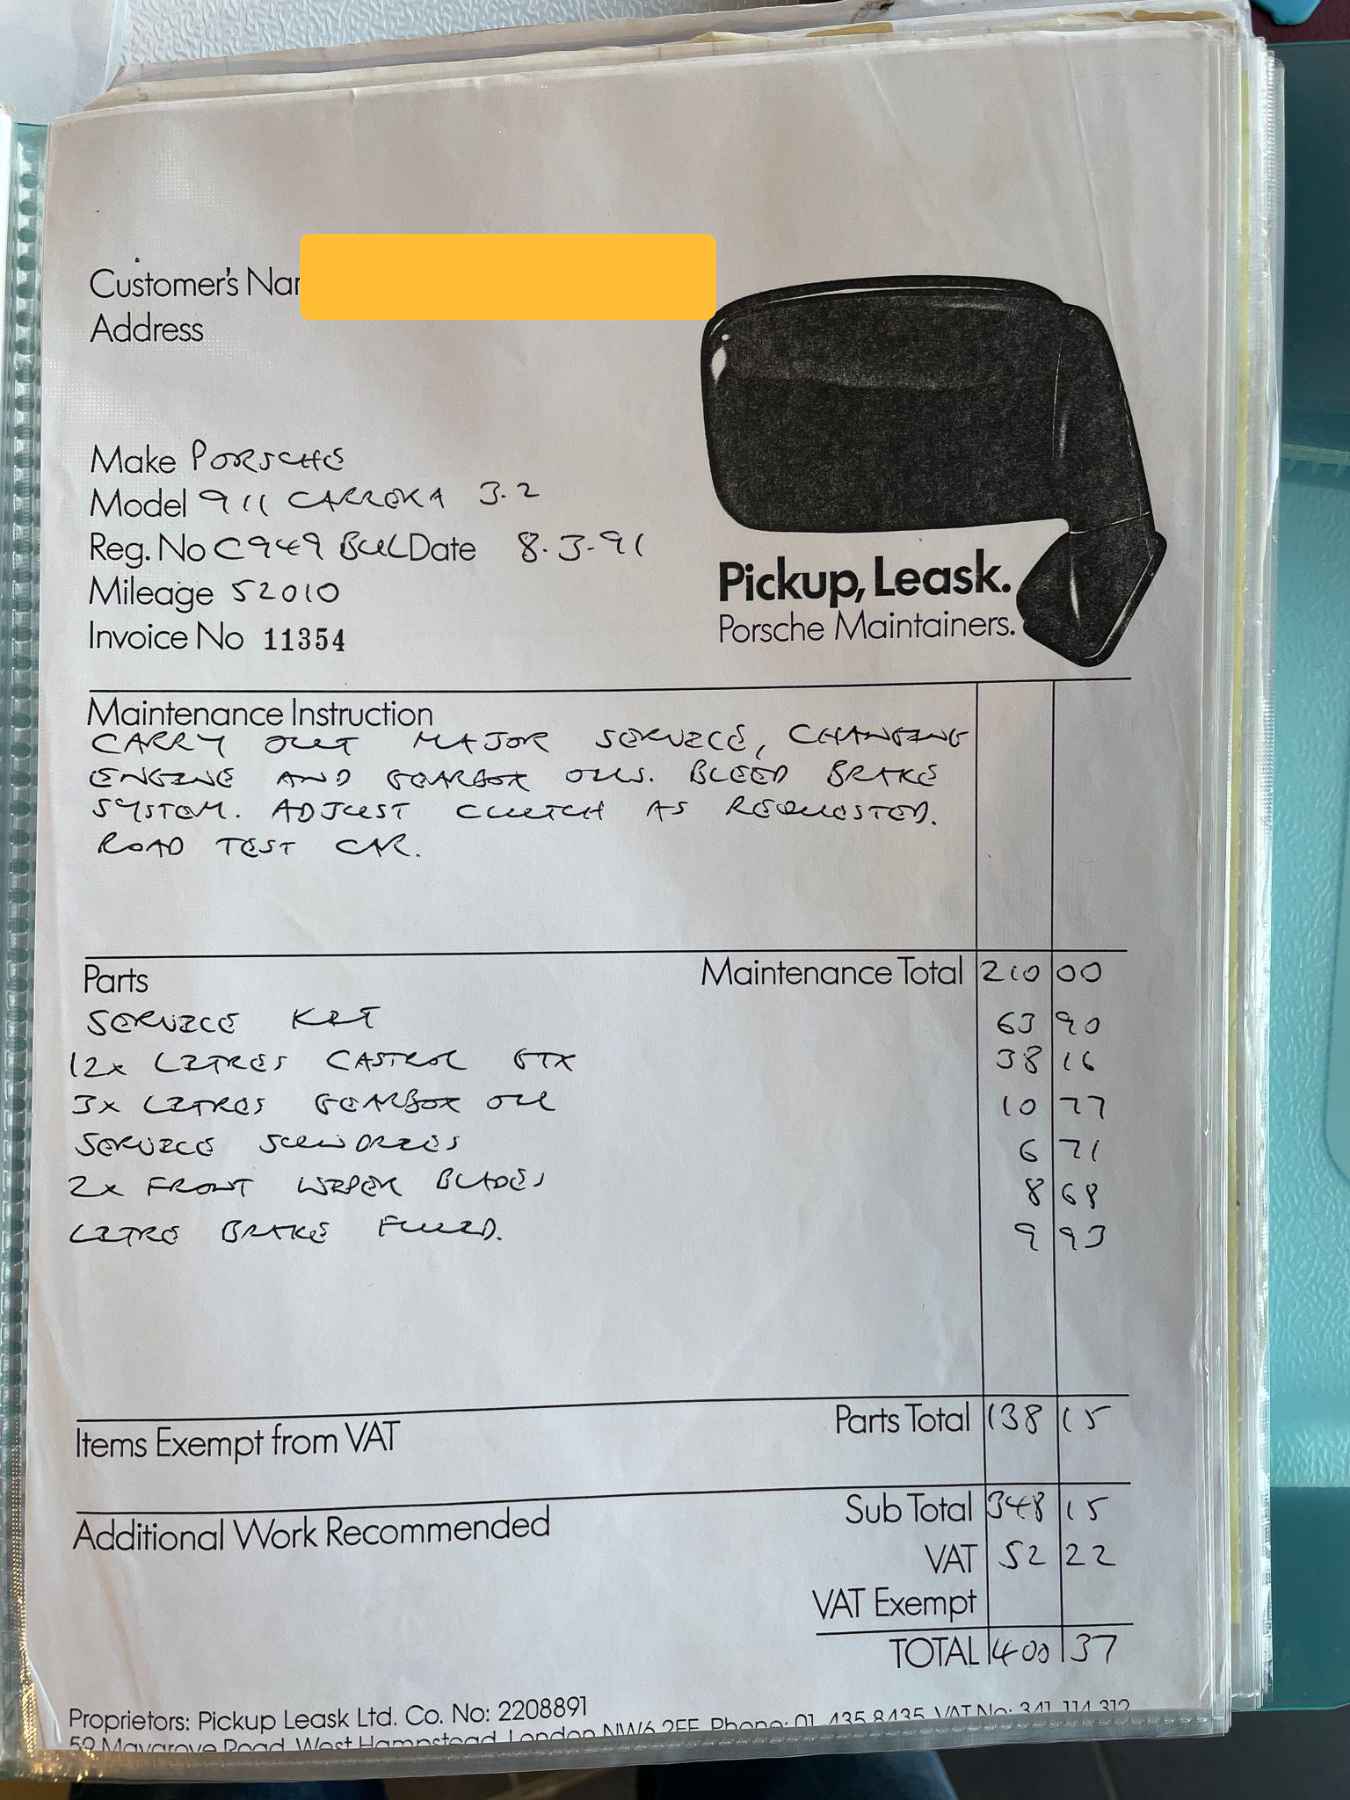 Customer's Nar
Address
Make PORSCHE
Model 911 CARRERA 3.2
Reg. No C949 BUL Date 8.3.91
Mileage 52010
Invoice No 11354
Pickup, Leask.
Porsche Maintainers.
Maintenance Instruction
CARRY OUT MAJOR SERVICE, CHANGING
ENGINE AND GEARBOX OILS. BLEED BRAKE
SYSTEM. ADJUST CLUTCH AS REQUESTED.
ROAD TEST CAR.
Parts Maintenance Total 210 00
SERVICE KIT 63 90
12x LITRES CASTROL GTX 38 16
3x LITRES GEARBOX OIL 10 77
SERVICE SUNDRIES 6 71
2x FRONT WIPER BLADES 8 68
LITRE BRAKE FLUID. 9 93
Items Exempt from VAT Parts Total 138 15
Additional Work Recommended Sub Total 348 15
VAT 52 22
VAT Exempt
TOTAL 400 37
Proprietors: Pickup Leask Ltd. Co. No: 2208891
59 Maygrove Road, West Hampstead, London NW6 2EE Phone: 01 435 8435 VAT No: 341 114 312